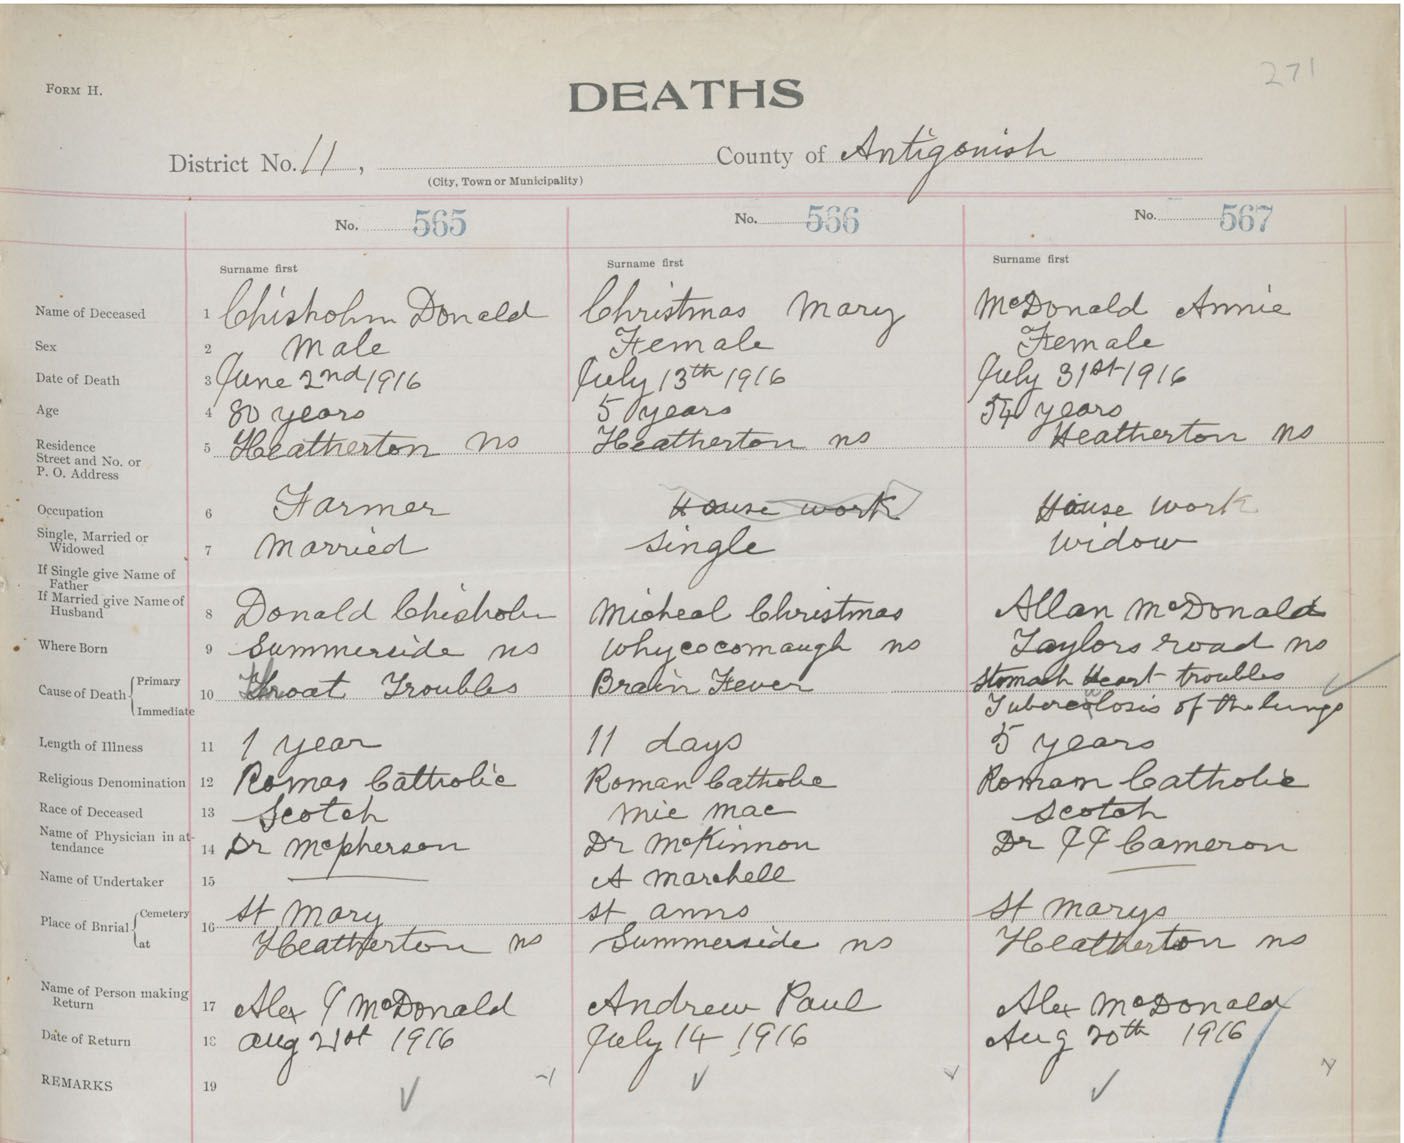 271
FORM H.
DEATHS
District No. 11, County of Antigonish
(City, Town or Municipality)
No. 565 No. 566 No. 567
Surname first Surname first Surname first
Name of Deceased 1 Chisholm Donald Christmas Mary McDonald Annie
Sex 2 Male Female Female
Date of Death 3 June 2nd 1916 July 13th 1916 July 31st 1916
Age 4 80 years 5 years 54 years
Residence Street and No. or P. O. Address 5 Heatherton NS Heatherton NS Heatherton NS
Occupation 6 Farmer House work House work
Single, Married or Widowed 7 Married Single Widow
If Single give Name of Father
If Married give Name of Husband 8 Donald Chisholm Micheal Christmas Allan McDonald
Where Born 9 Summerside NS Whycocomaugh NS Taylors road NS
Cause of Death Primary 10 Throat Troubles Brain Fever Stomach Heart troubles
Immediate Tuberculosis of the lungs
Length of Illness 11 1 year 11 days 5 years
Religious Denomination 12 Roman Cattholic Roman Catholic Roman Catholic
Race of Deceased 13 Scotch Mic Mac Scotch
Name of Physician in attendance 14 Dr McPherson Dr McKinnon Dr JJ Cameron
Name of Undertaker 15 A Marchell
Place of Burial Cemetery 16 St Mary St Anns St Marys
at Heatherton NS Summerside NS Heatherton NS
Name of Person making Return 17 Alex J McDonald Andrew Paul Alex McDonald
Date of Return 18 Aug 21st 1916 July 14 1916 Aug 20th 1916
REMARKS 19